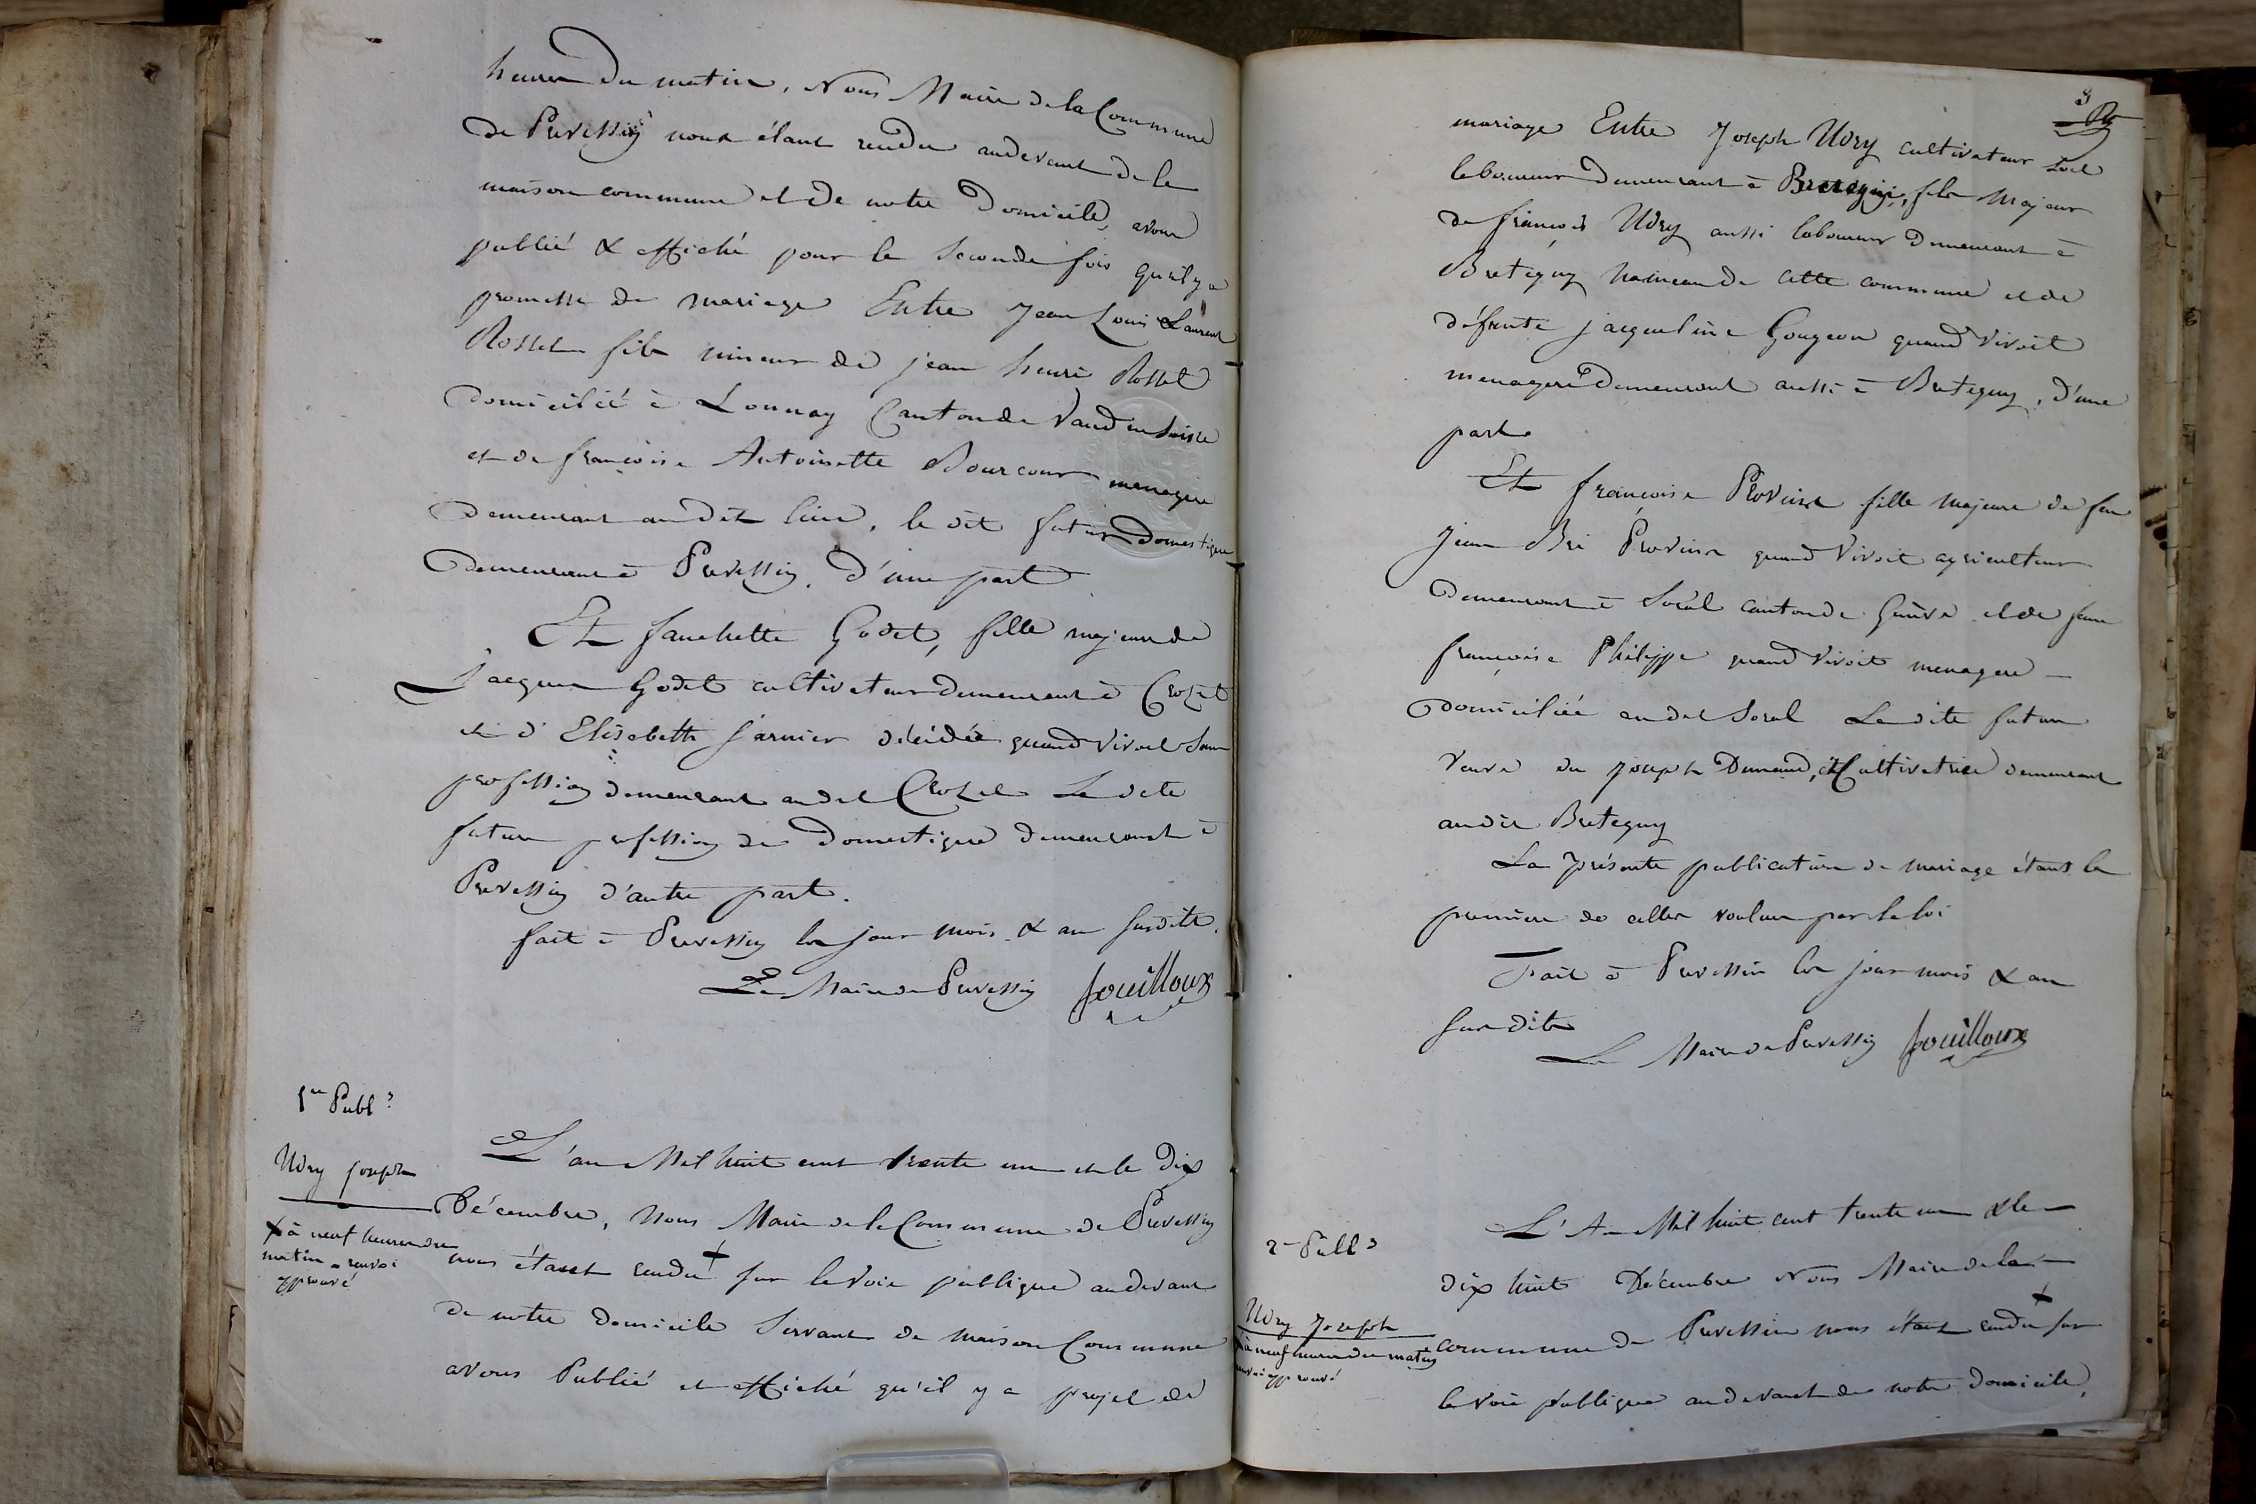 heures du matin, Nous Maire de la Commune
de Prevessin nous étant rendu audevant de la
maison commune et de notre Domicile, avons
publié & affiché pour la Seconde fois qu'il y a
promesse de mariage Entre Jean Louis Laurent
Rosset fils mineur de jean henri Rosset
domicilié à Lonnay Canton de Vaud en Suisse
et de françoise Antoinette Bourcour menagere
demeurant au dit lieu, le dit futur Domestique
demeurant à Prevessin, d'une part
Et fanchette Godet, fille majeure de
Jacques Godet cultivateur demeurant à Crozet
et d'Elisabeth Garnier décédée quand vivoit sans
profession demeurant audit Crozet La dite
future profession de Domestique demeurant à
Prevessin d'autre part.
fait à Prevessin les jour mois & an susdits.
Le Maire de Prevessin fouilloux
1re Publ.
Udry Joseph
à neuf heures du
matin renvoi
approuvé
L'an Mil huit cent trente un et le Dix
Décembre, Nous Maire de la Commune de Prevessin
nous étant rendu sur la Voie publique audevant
de notre domicile Servant de maison Commune
avons Publié et affiché qu'il y a projet de
3
mariage Entre Joseph Udry cultivateur
laboureur demeurant à Bretegni, fils Majeur
de françois Udry aussi laboureur demeurant à
Bretegny hameau de cette commune et de
défunte jacqueline Gougeon quand vivoit
menagere demeurant aussi à Bretegny, d'une
part
Et françoise Provins fille Majeure de feu
Jean Bri Provins quand vivoit agriculteur
demeurant à Soral canton de Genève et de feue
françoise Philippe quand vivoit menagere
domiciliée audit Soral La dite future
Veuve de Joseph Dumand, et Cultivatrice demeurant
au dit Bretegny
La présente publication de mariage étant la
première de celles voulues par la loi
Fait à Prevessin les jour mois & an
susdits
Le Maire de Prevessin fouilloux
2e Publ.
Udry Joseph
à neuf heures du matin
renvoi approuvé
L'An Mil huit cent trente un & le
dix huit Décembre Nous Maire de la
commune de Prevessin nous étant rendu sur
la voie publique au devant de notre domicile,